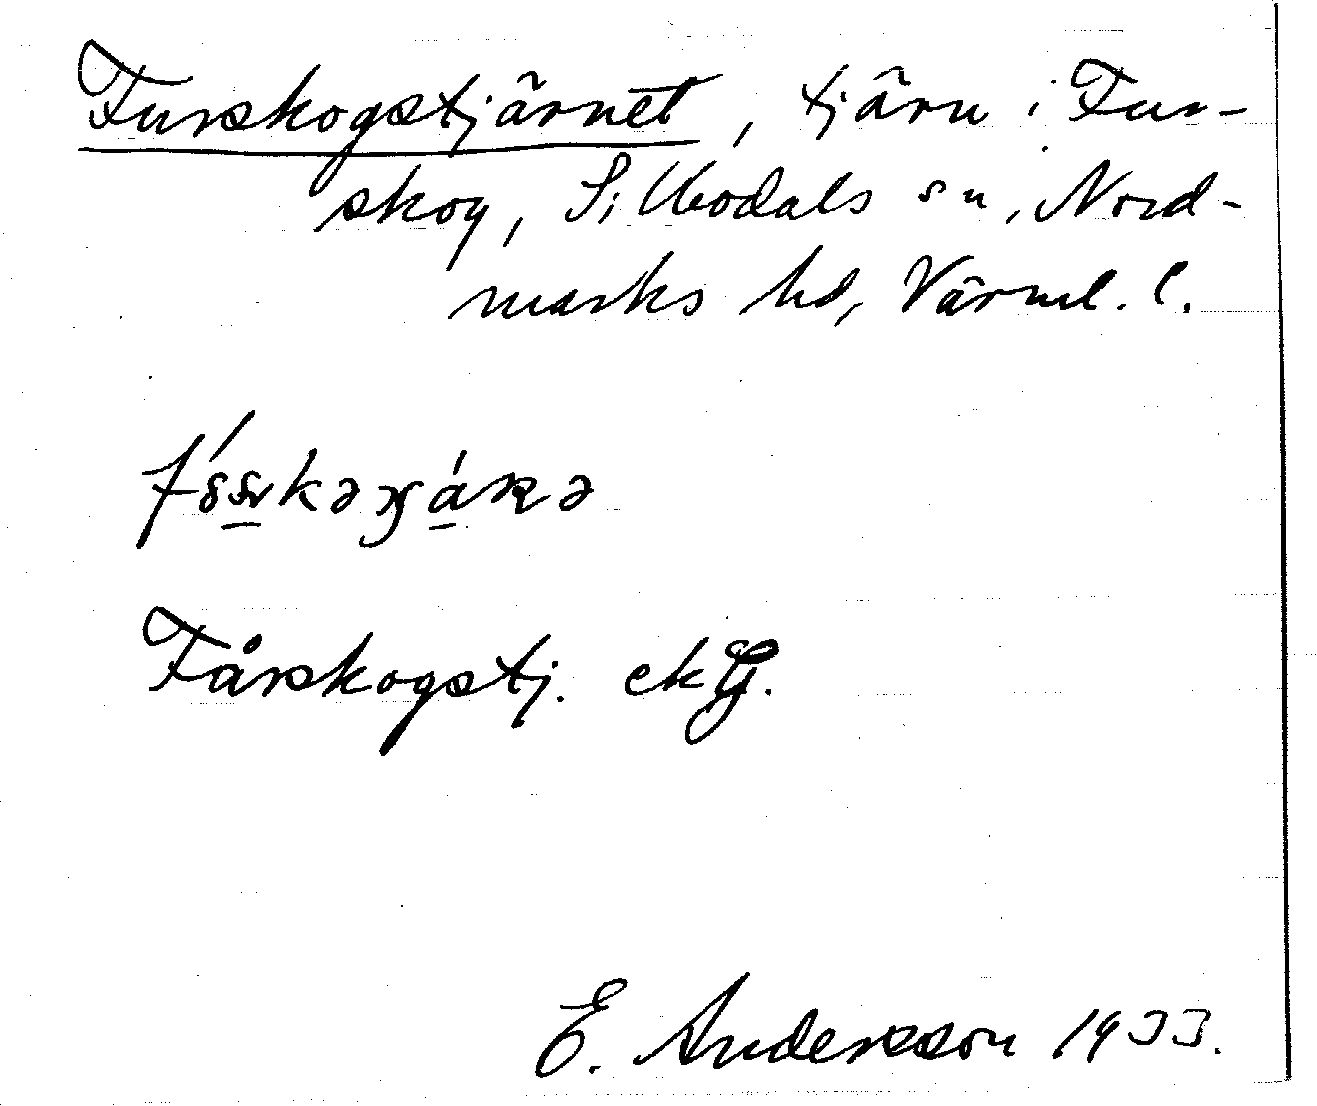 Furskogstjärnet, tjärn i Fur-
skog, Sillbodals sn, Nord-
marks hd, Värml. l.
Fårskogstj. ek
E. Andersson 1933.